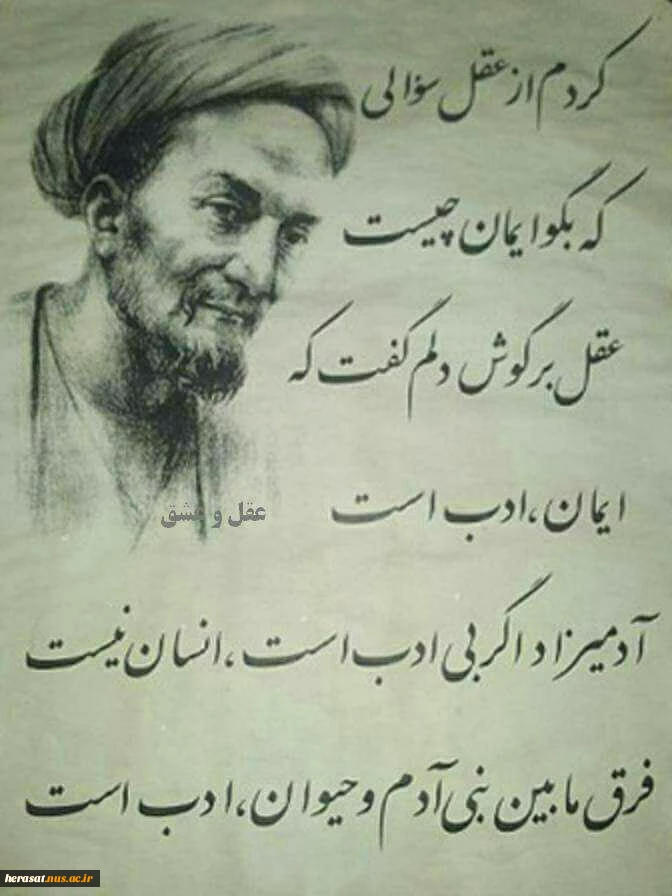 کردم از عقل سؤالی
که بگو ایمان چیست
عقل بر گوش دلم گفت که
ایمان، ادب است
عقل و عشق
آدمیزاد اگر بی ادب است، انسان نیست
فرق ما بین بنی آدم و حیوان، ادب است
herasat.nus.ac.ir